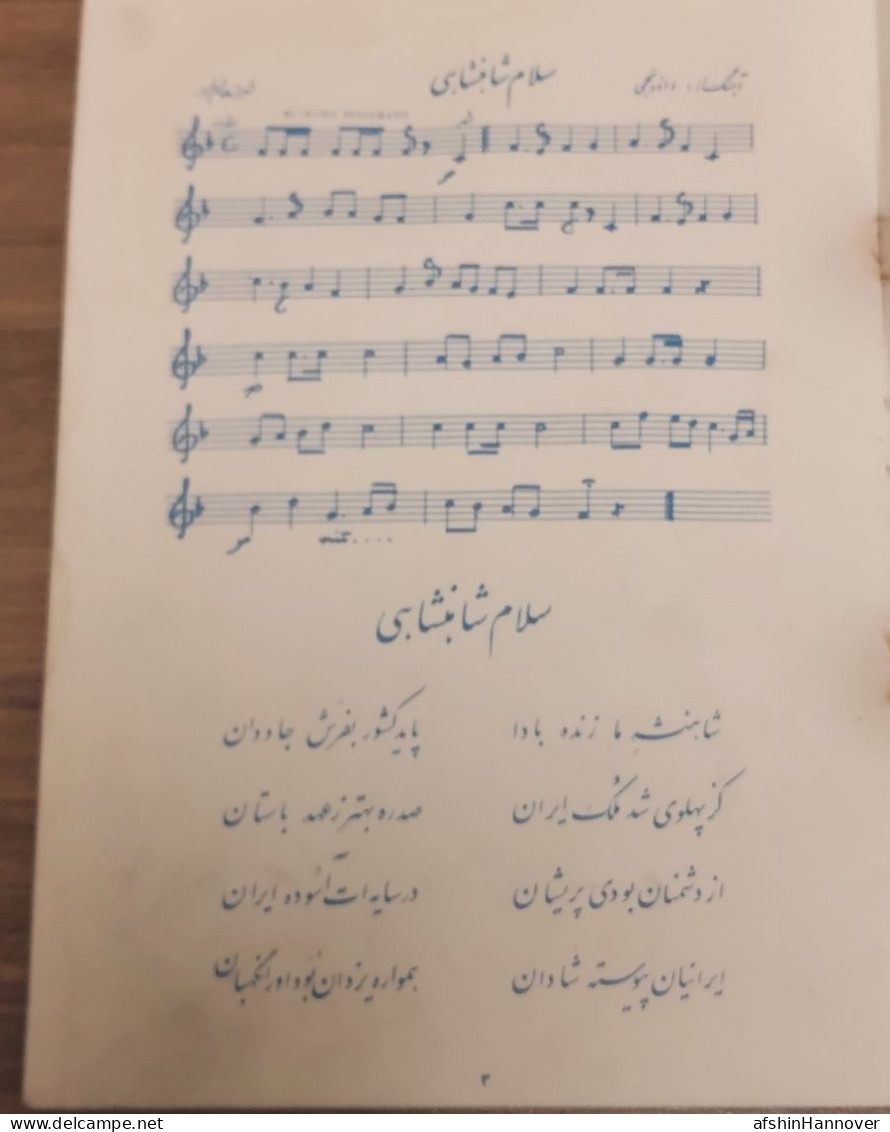 سلام شاهنشاهی
سلام شاهنشاهی
شاهنشه ما زنده بادا پاید کشور بفرش جاودان
کز پهلوی شد مُلک ایران صدره بهتر ز عهد باستان
از دشمنان بودی پریشان در سایه ات آسوده ایران
ایرانیان پیوسته شادان همواره یزدان بُوَد اورا نگهبان
۳
www.delcampe.net
afshinHannover